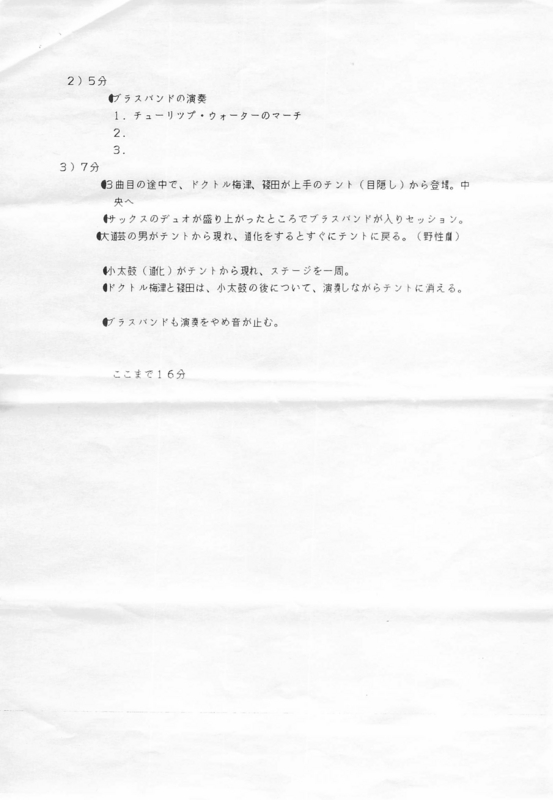 2)5分
●ブラスバンドの演奏
1. チューリップ・ウォーターのマーチ
2.
3.
3)7分
●3曲目の途中で、ドクトル梅津、篠田が上手のテント(目隠し)から登場。中
央へ
●サックスのデュオが盛り上がったところでブラスバンドが入りセッション。
●大道芸の男がテントから現れ、道化をするとすぐにテントに戻る。(野性
●小太鼓(道化)がテントから現れ、ステージを一周。
●ドクトル梅津と篠田は、小太鼓の後について、演奏しながらテントに消える。
●ブラスバンドも演奏をやめ音が止む。
ここまで16分